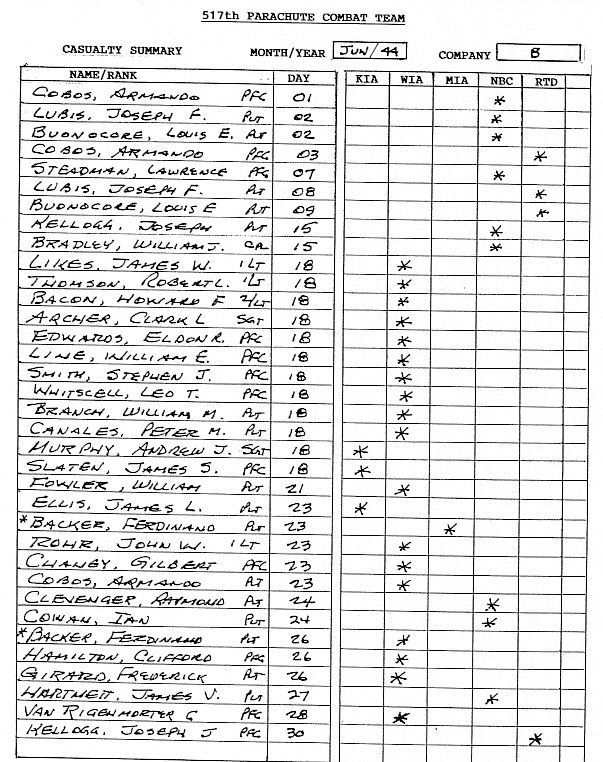 517th PARACHUTE COMBAT TEAM
CASUALTY SUMMARY MONTH/YEAR JUN/44 COMPANY B
NAME/RANK DAY KIA WIA MIA NBC RTD
COBOS, ARMANDO PFC 01 *
LUBIS, JOSEPH F. PVT 02 *
BUONOCORE, LOUIS E. PVT 02 *
COBOS, ARMANDO PFC 03 *
STEADMAN, LAWRENCE PFC 07 *
LUBIS, JOSEPH F. PVT 08 *
BUONOCORE, LOUIS E PVT 09 *
KELLOGG, JOSEPH PVT 15 *
BRADLEY, WILLIAM J. 15 *
LIKES, JAMES W. 1LT 18 *
THOMSON, ROBERT L. 1LT 18 *
BACON, HOWARD F 2/LT 18 *
ARCHER, CLARK L SGT 18 *
EDWARDS, ELDON R. PFC 18 *
LINE, WILLIAM E. PFC 18 *
SMITH, STEPHEN J. PFC 18 *
WHITSCELL, LEO T. PFC 18 *
BRANCH, WILLIAM M. PVT 18 *
CANALES, PETER M. PVT 18 *
MURPHY, ANDREW J. SGT 18 *
SLATEN, JAMES S. PFC 18 *
FOWLER, WILLIAM PVT 21 *
ELLIS, JAMES L. PVT 23 *
*BACKER, FERDINAND PVT 23 *
ROHR, JOHN W. 1LT 23 *
CHANEY, GILBERT PFC 23 *
COBOS, ARMANDO PVT 23 *
CLEVENGER, RAYMOND PVT 24 *
COWAN, IAN PVT 24 *
*BACKER, FERDINAND PVT 26 *
HAMILTON, CLIFFORD PFC 26 *
GIRARD, FREDERICK PVT 26 *
HARTNETT, JAMES V. PVT 27 *
VAN RIGENMORTER G PFC 28 *
KELLOGG, JOSEPH J PFC 30 *